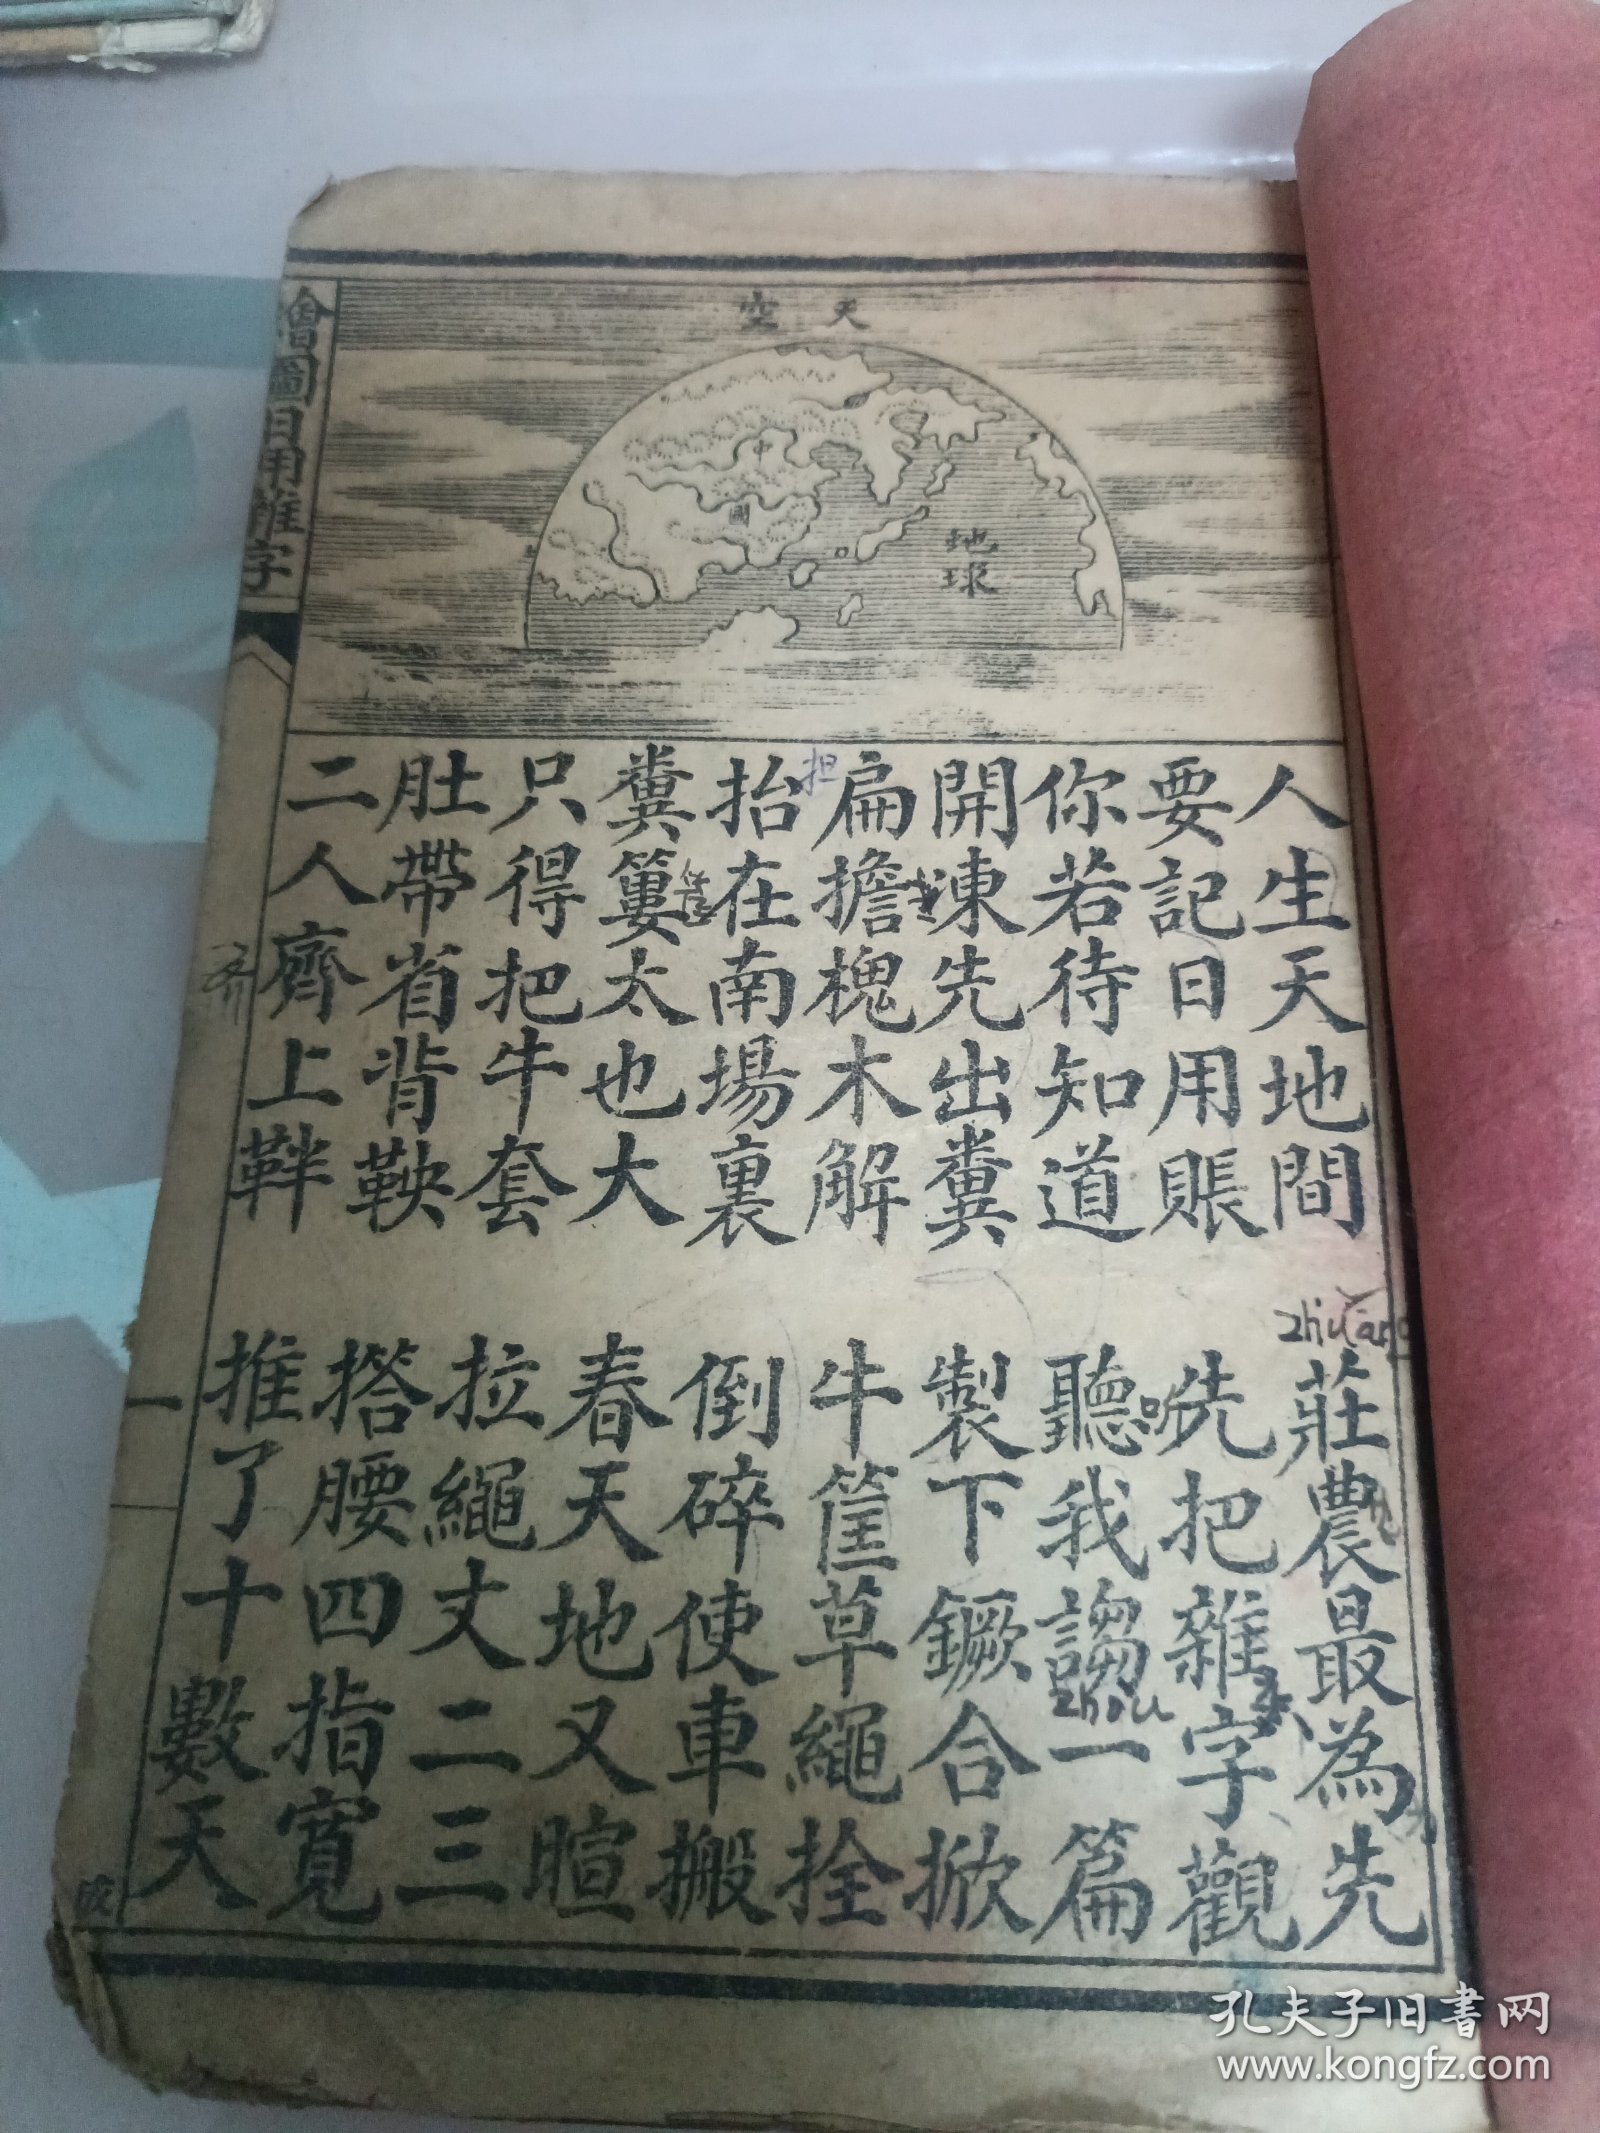 繪圖日用雜字
天空
中國
地球
人生天地間 莊農最為先
要記日用賬 先把雜字觀
你若待知道 聽我謅一篇
開凍先出糞 製下鐝合掀
扁擔槐木解 牛筐草繩拴
抬在南場裏 倒碎使車搬
糞簍太也大 春天地又暄
只得把牛套 拉繩丈二三
肚帶省背鞅 搭腰四指寬
二人齊上靽 推了十數天
一
zhuang
zhou
听
担
齐
孔夫子旧书网
www.kongfz.com